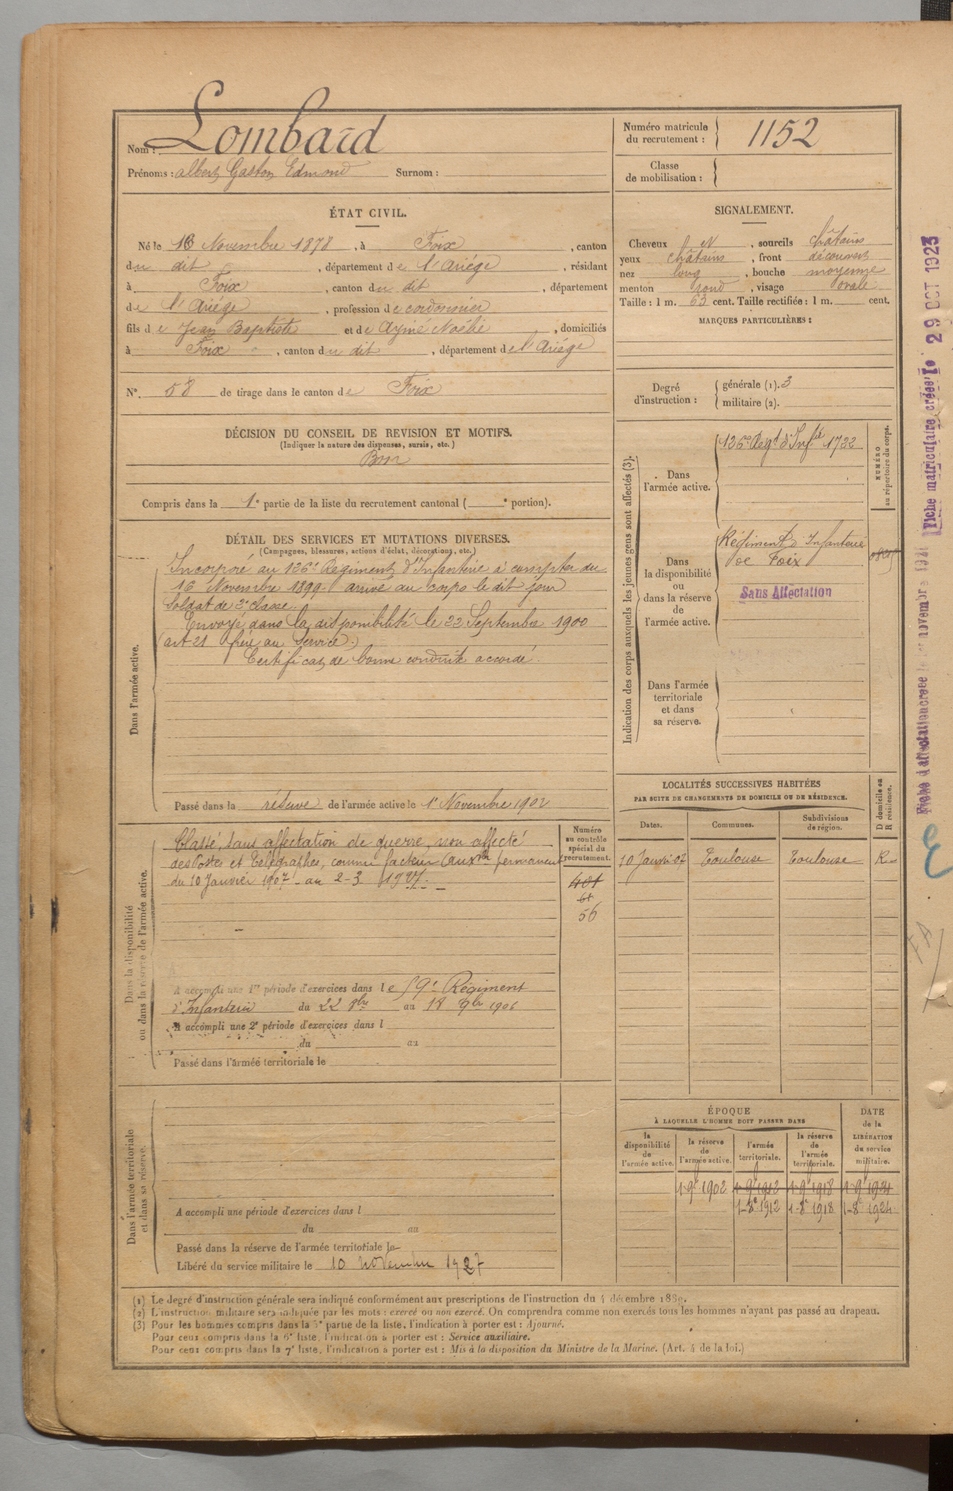 Nom : Lombard
Prénoms : albert Gaston Edmond Surnom :
Numéro matricule du recrutement : 1152
Classe de mobilisation :
ÉTAT CIVIL.
Né le 16 Novembre 1878, à Foix, canton
du dit, département de l'Ariége, résidant
à Foix, canton du dit, département
de l'Ariége, profession de cordonnier
fils de Jean Baptiste et de Aymé Noélie, domiciliés
à Foix, canton du dit, département de l'Ariége
N° 58 de tirage dans le canton de Foix
SIGNALEMENT.
Cheveux N, sourcils châtains
yeux châtains, front découvert
nez long, bouche moyenne
menton rond, visage ovale
Taille : 1 m. 63 cent. Taille rectifiée : 1 m. cent.
MARQUES PARTICULIÈRES :
Degré d'instruction : générale (1). 3
militaire (2).
DÉCISION DU CONSEIL DE REVISION ET MOTIFS.
(Indiquer la nature des dispenses, sursis, etc.)
Bon
Compris dans la 1e partie de la liste du recrutement cantonal ( e portion).
DÉTAIL DES SERVICES ET MUTATIONS DIVERSES.
(Campagnes, blessures, actions d'éclat, décorations, etc.)
Dans l'armée active.
Incorporé au 126e Régiment d'Infanterie à compter du
16 Novembre 1899 arrivé au corps le dit jour
Soldat de 2e classe.
Envoyé dans la disponibilité le 22 Septembre 1900
(art 21 frère au service.)
Certificat de bonne conduite accordé.
Passé dans la réserve de l'armée active le 1er Novembre 1902
Indication des corps auxquels les jeunes gens sont affectés (3).
NUMÉRO au répertoire du corps.
Dans l'armée active.
126e Régt d'Infie 1722
Dans la disponibilité ou dans la réserve de l'armée active.
Régiment d'Infanterie
de Foix
Sans Affectation
Dans l'armée territoriale et dans sa réserve.
Dans la disponibilité
ou dans la réserve de l'armée active.
Classé, sans affectation de guerre, non affecté
des Postes et Télégraphes, comme facteur auxre permanent
du 10 Janvier 1907 au 2-3 1927.
Numéro au contrôle spécial du recrutement.
56
A accompli une 1re période d'exercices dans le 59e Régiment
d'Infanterie du 22 8bre au 18 9bre 1906
A accompli une 2e période d'exercices dans l
du au
Passé dans l'armée territoriale le
LOCALITÉS SUCCESSIVES HABITÉES
PAR SUITE DE CHANGEMENTS DE DOMICILE OU DE RÉSIDENCE.
D domicile ou R résidence.
Dates. Communes. Subdivisions de région.
10 Janvr 07 Toulouse Toulouse R
Dans l'armée territoriale
et dans sa réserve.
A accompli une période d'exercices dans l
du au
Passé dans la réserve de l'armée territoriale le
Libéré du service militaire le 10 novembre 1927
ÉPOQUE
À LAQUELLE L'HOMME DOIT PASSER DANS
DATE de la LIBÉRATION du service militaire.
la disponibilité de l'armée active. la réserve de l'armée active. l'armée territoriale. la réserve de l'armée territoriale.
1-9e 1902 1-9e 1912 1-9e 1918 1-9e 1924
1-8e 1912 1-8e 1918 1-8e 1924
(1) Le degré d'instruction générale sera indiqué conformément aux prescriptions de l'instruction du 4 décembre 1889.
(2) L'instruction militaire sera indiquée par les mots : exercé ou non exercé. On comprendra comme non exercés tous les hommes n'ayant pas passé au drapeau.
(3) Pour les hommes compris dans la 5e partie de la liste, l'indication à porter est : Ajourné.
Pour ceux compris dans la 6e liste, l'indication à porter est : Service auxiliaire.
Pour ceux compris dans la 7e liste, l'indication à porter est : Mis à la disposition du Ministre de la Marine. (Art. 4 de la loi.)
Fiche matriculaire créée le 29 OCT 1923